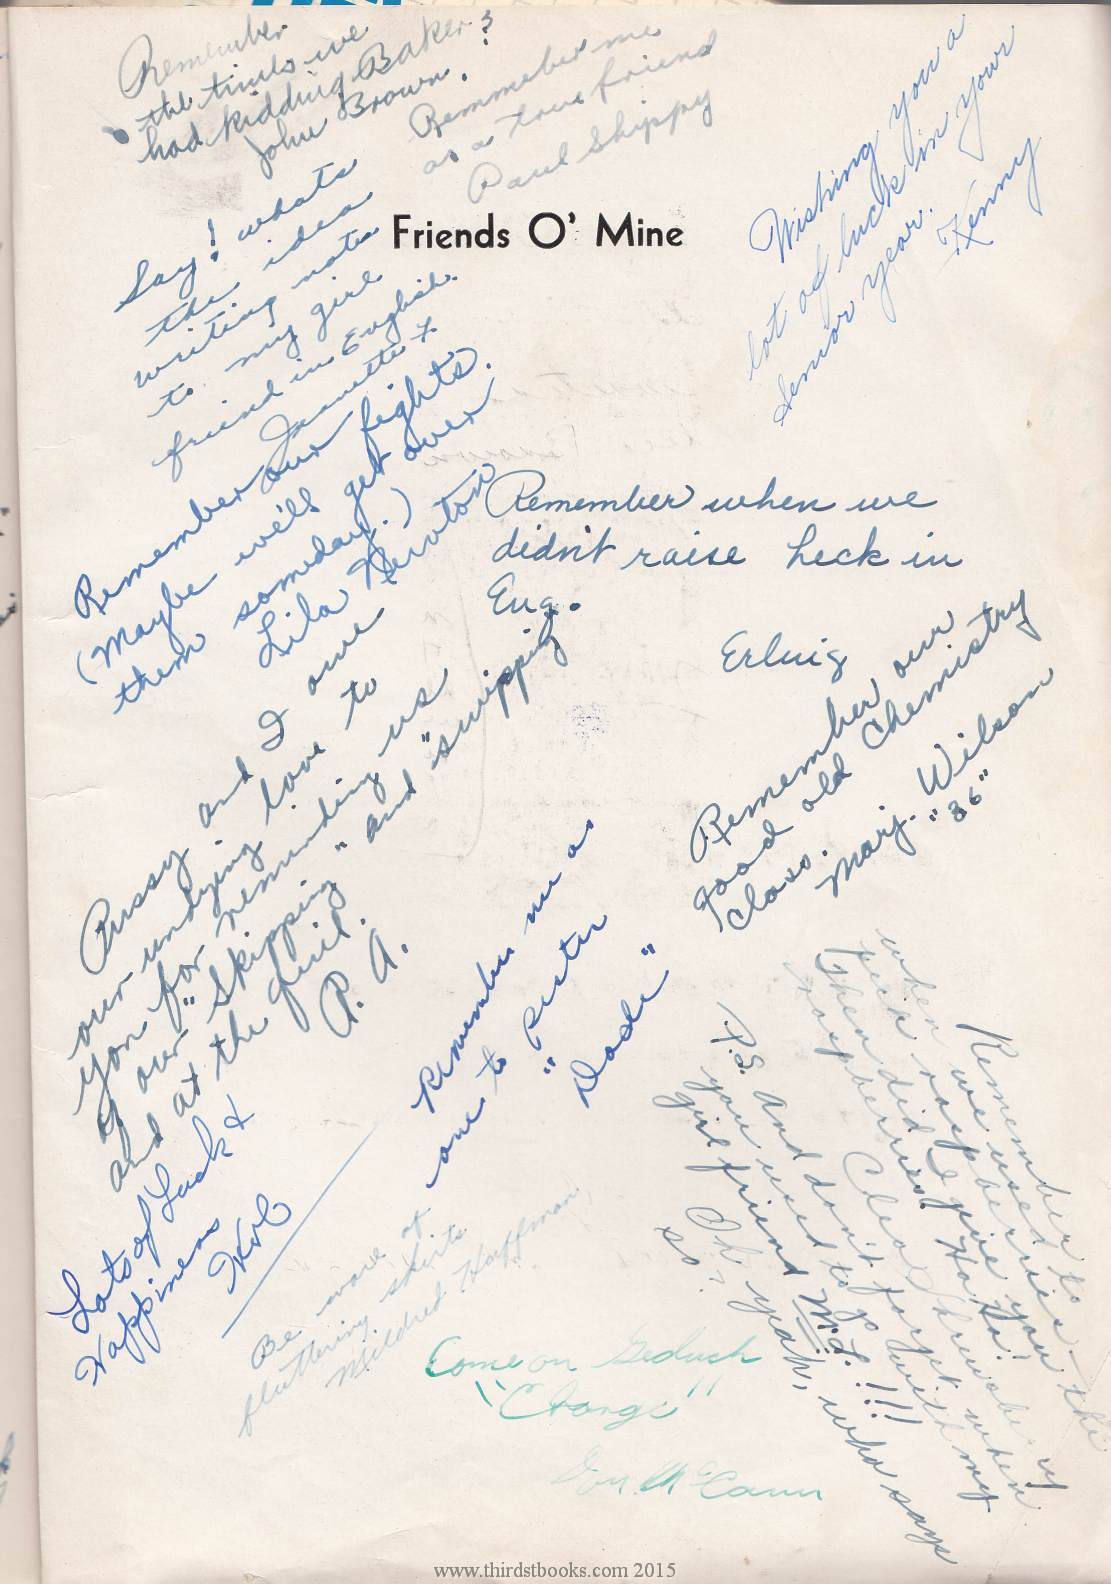 Remember
the times we
had kidding Baker?
John Brown.
Remember me
as a true friend
Paul Shippy
Wishing you a
lot of luck in your
Senior year.
Kenny
Friends O' Mine
Say! whats
the idea
writing notes
to my girl
friend in English.
Jeanette F.
Remember our fights.
(Maybe we'll get over
them someday.)
Lila Newton
Remember when we
didn't raise heck in
Eng.
Erluig
Remember our
good old Chemistry
Class.
Marj. Wilson
"36"
Pussy and I owe
our undying love to
you for reminding us
of our "Skipping" and "swipping
and at the quil.
P. A.
Remember me as
one to Pester
"Dode"
Lots of Luck &
Happiness
Be ware of
fluttering skirts
Mildred Hoffman
Remember
when we used to
pick raspberries
then did I give you the
raspberries! Ha Ha!
when
P.S. And don't forget
you used to go with my
girl friend M.L.!!!
Oh yeah, who says
so?
Come on
"Change"
McCann
www.thirdstbooks.com 2015